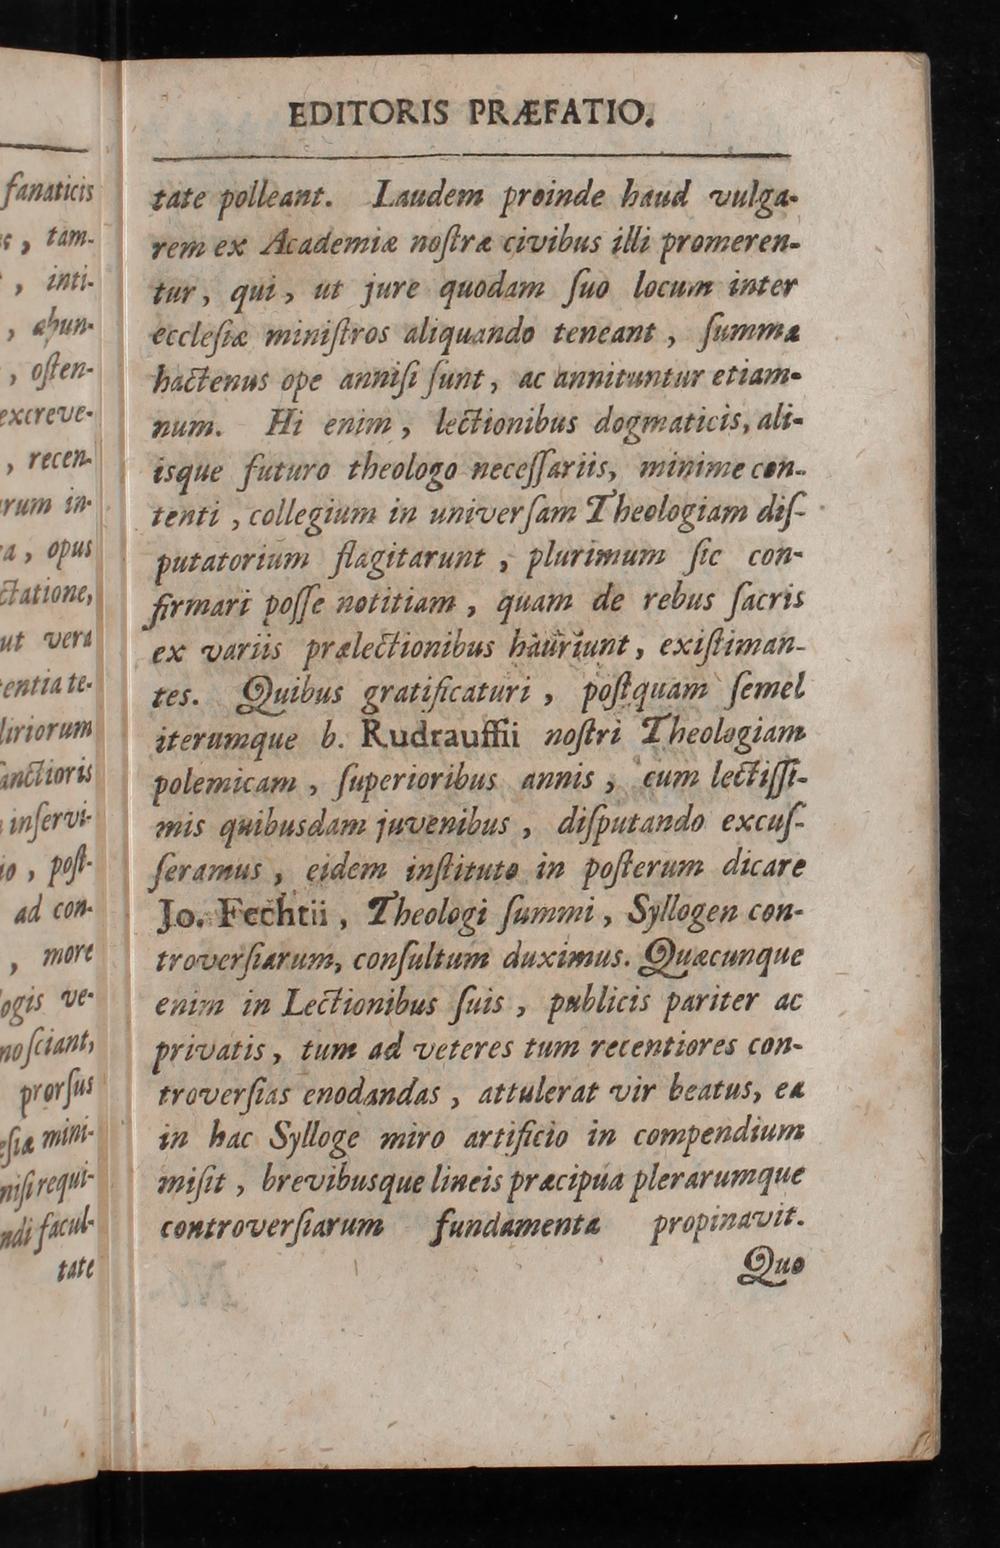 EDITORIS PRÆFATIO.
tate polleant. Laudem proinde haud vulga-
rem ex Academiæ noſtræ civibus illi promeren-
tur, qui, ut jure quodam ſuo locum inter
eccleſiæ miniſtros aliquando teneant, ſumma
hactenus ope anniſi ſunt, ac annituntur etiam-
num. Hi enim, lectionibus dogmaticis, ali-
isque futuro theologo neceſſariis, minime con-
tenti, collegium in univerſam Theologiam diſ-
putatorium flagitarunt, plurimum ſic con-
firmari poſſe notitiam, quam de rebus ſacris
ex variis prælectionibus hauriunt, exiſtiman-
tes. Quibus gratificaturi, poſtquam ſemel
iterumque b. Rudrauffii noſtri Theologiam
polemicam, ſuperioribus annis, cum lectiſſi-
mis quibusdam juvenibus, diſputando excuſ-
ſeramus, eidem inſtituto in poſterum dicare
Jo. Fechtii, Theologi ſummi, Syllogen con-
troverſiarum, conſultum duximus. Quæcunque
enim in Lectionibus ſuis, publicis pariter ac
privatis, tum ad veteres tum recentiores con-
troverſias enodandas, attulerat vir beatus, ea
in hac Sylloge miro artificio in compendium
miſit, brevibusque lineis præcipua plerarumque
controverſiarum fundamenta propinavit.
Quo
fanaticis
, tam-
, inti-
, abun-
, oſten-
excreve-
, recen-
rum in-
a, opus
ctatione,
ut vera
entia te-
liriorum
anctioris
inſervi-
io, poſt-
ad con-
, more
ogis ve-
noſciant,
prorſus
eſiæ mini-
niſi requi-
ndi facul-
tate